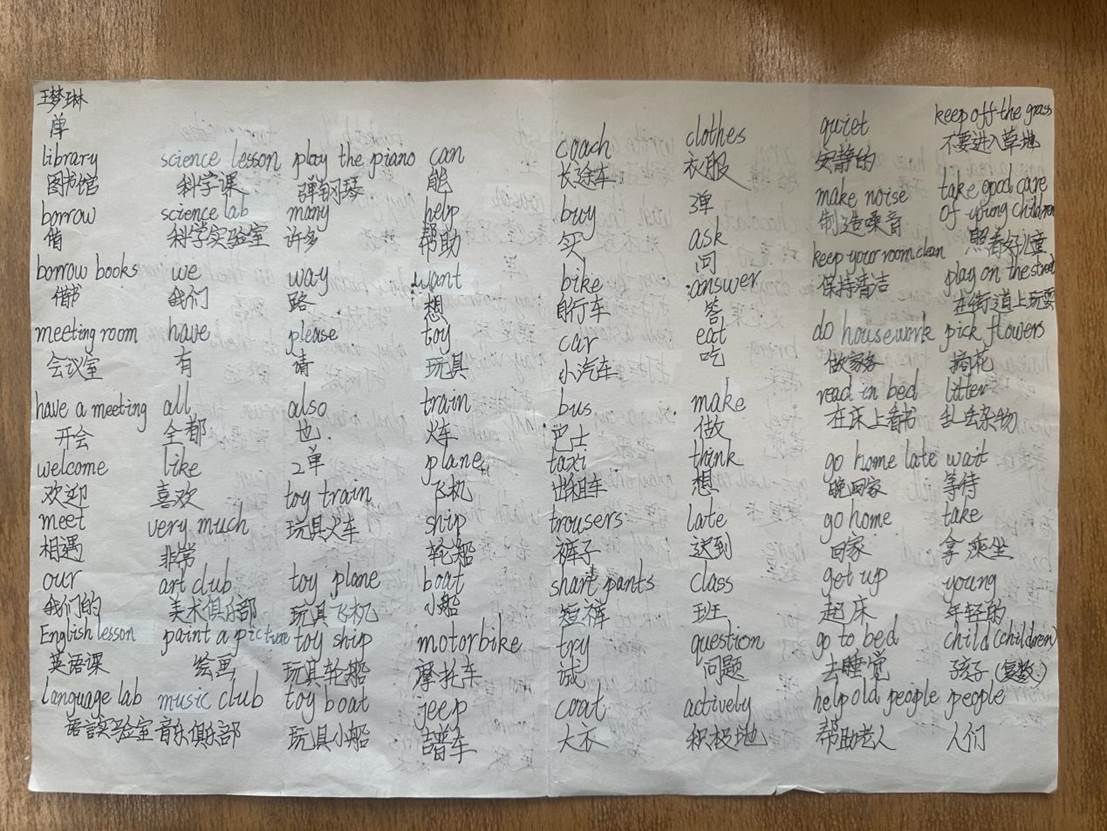 王梦琳
单
library
图书馆
borrow
借
borrow books
借书
meeting room
会议室
have a meeting
开会
welcome
欢迎
meet
相遇
our
我们的
English lesson
英语课
language lab
语言实验室
science lesson
科学课
science lab
科学实验室
we
我们
have
有
all
全都
like
喜欢
very much
非常
art club
美术俱乐部
paint a picture
绘画
music club
音乐俱乐部
play the piano
弹钢琴
many
许多
way
路
please
请
also
也
2单
toy train
玩具火车
toy plane
玩具飞机
toy ship
玩具轮船
toy boat
玩具小船
can
能
help
帮助
want
想
toy
玩具
train
火车
plane
飞机
ship
轮船
boat
小船
motorbike
摩托车
jeep
吉普车
coach
长途车
buy
买
bike
自行车
car
小汽车
bus
巴士
taxi
出租车
trousers
裤子
short pants
短裤
try
试
coat
大衣
clothes
衣服
3单
ask
问
answer
答
eat
吃
make
做
think
想
late
迟到
class
班
question
问题
actively
积极地
quiet
安静的
make noise
制造噪音
keep your room clean
保持清洁
do housework
做家务
read in bed
在床上看书
go home late
晚回家
go home
回家
get up
起床
go to bed
去睡觉
help old people
帮助老人
keep off the grass
不要进入草地
take good care
of young children
照看好儿童
play on the street
在街道上玩耍
pick flowers
摘花
litter
乱丢杂物
wait
等待
take
拿 乘坐
young
年轻的
child (children)
孩子(复数)
people
人们